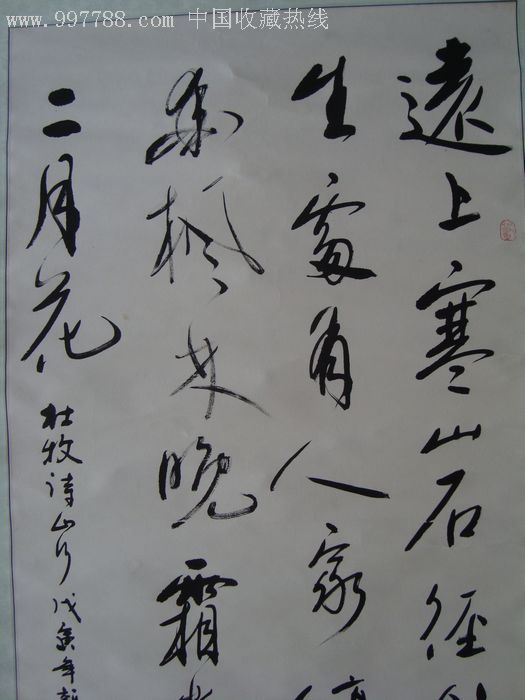 www.997788.com 中国收藏热线
遠上寒山石徑
生處有人家停
愛楓林晚霜
二月花
杜牧詩山行 戊寅年